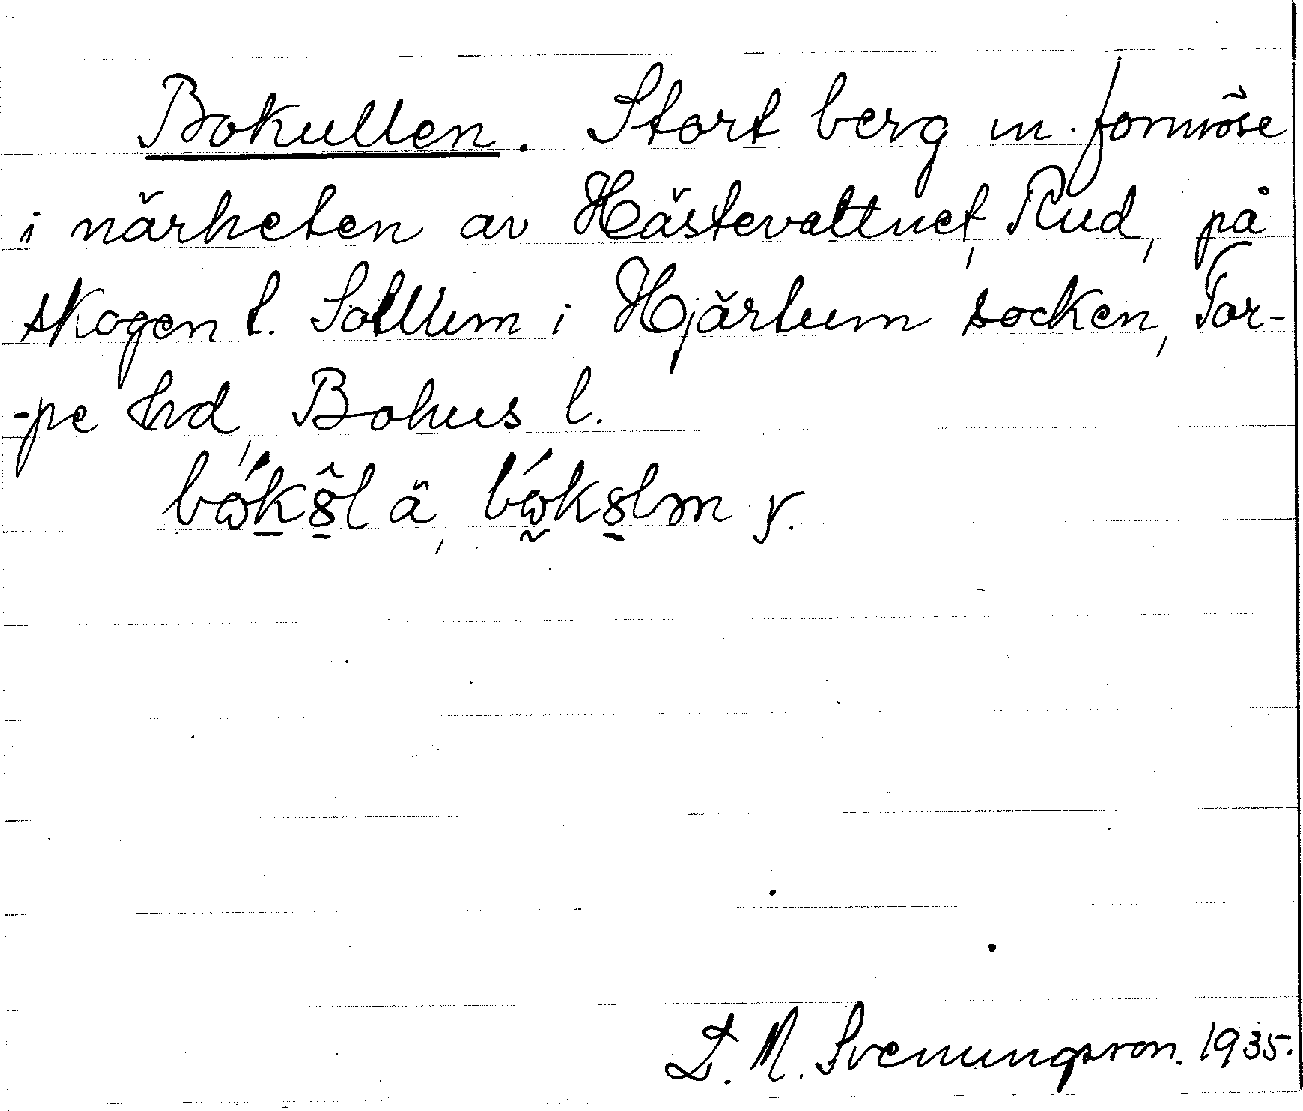 Bokullen. Stort berg m. fornröse
i närheten av Hästevattnet, Rud, på
skogen t. Sollum i Hjärtum socken, Tor-
-pe hd, Bohus l.
D. M. Svenungsson. 1935.